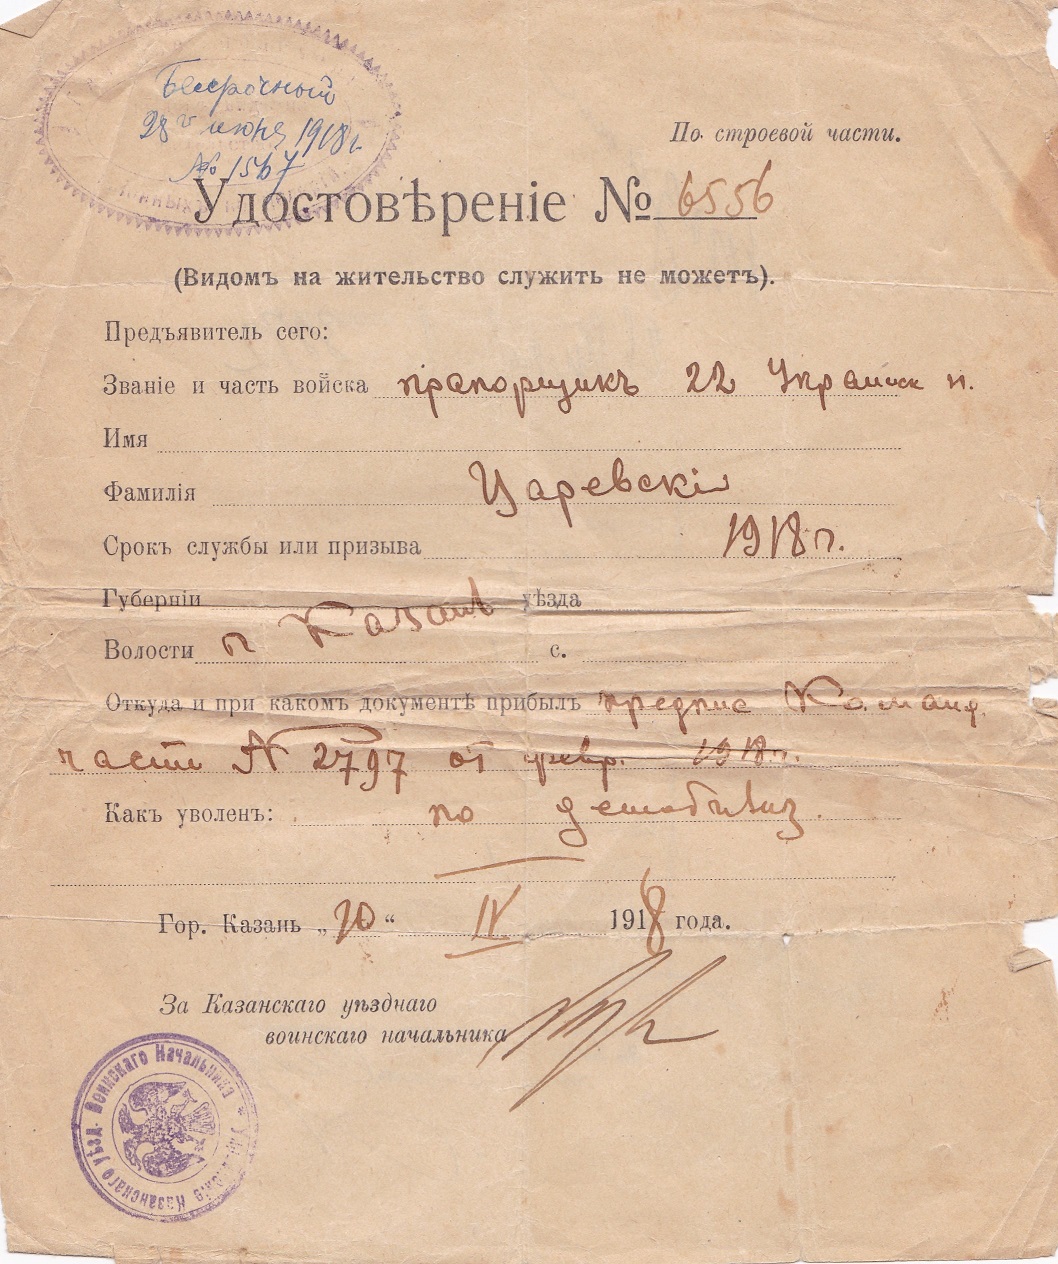 Безсрочный
28го июня 1918г.
№ 1567
По строевой части.
Удостовѣреніе № 6556
(Видомъ на жительство служить не можетъ).
Предъявитель сего:
Званіе и часть войска прапорщикъ 22 п.
Имя
Фамилія Царевскій
Срокъ службы или призыва 1918 г.
Губерніи уѣзда
Волости г Казань с.
Откуда и при какомъ документѣ прибылъ предпис Команд
части № 2797 от февр. 1918г.
Какъ уволенъ: по
Гор. Казань „20“ IV 1918 года.
За Казанскаго уѣзднаго
воинскаго начальника
Казанскаго Уѣзд. Воинскаго Начальника